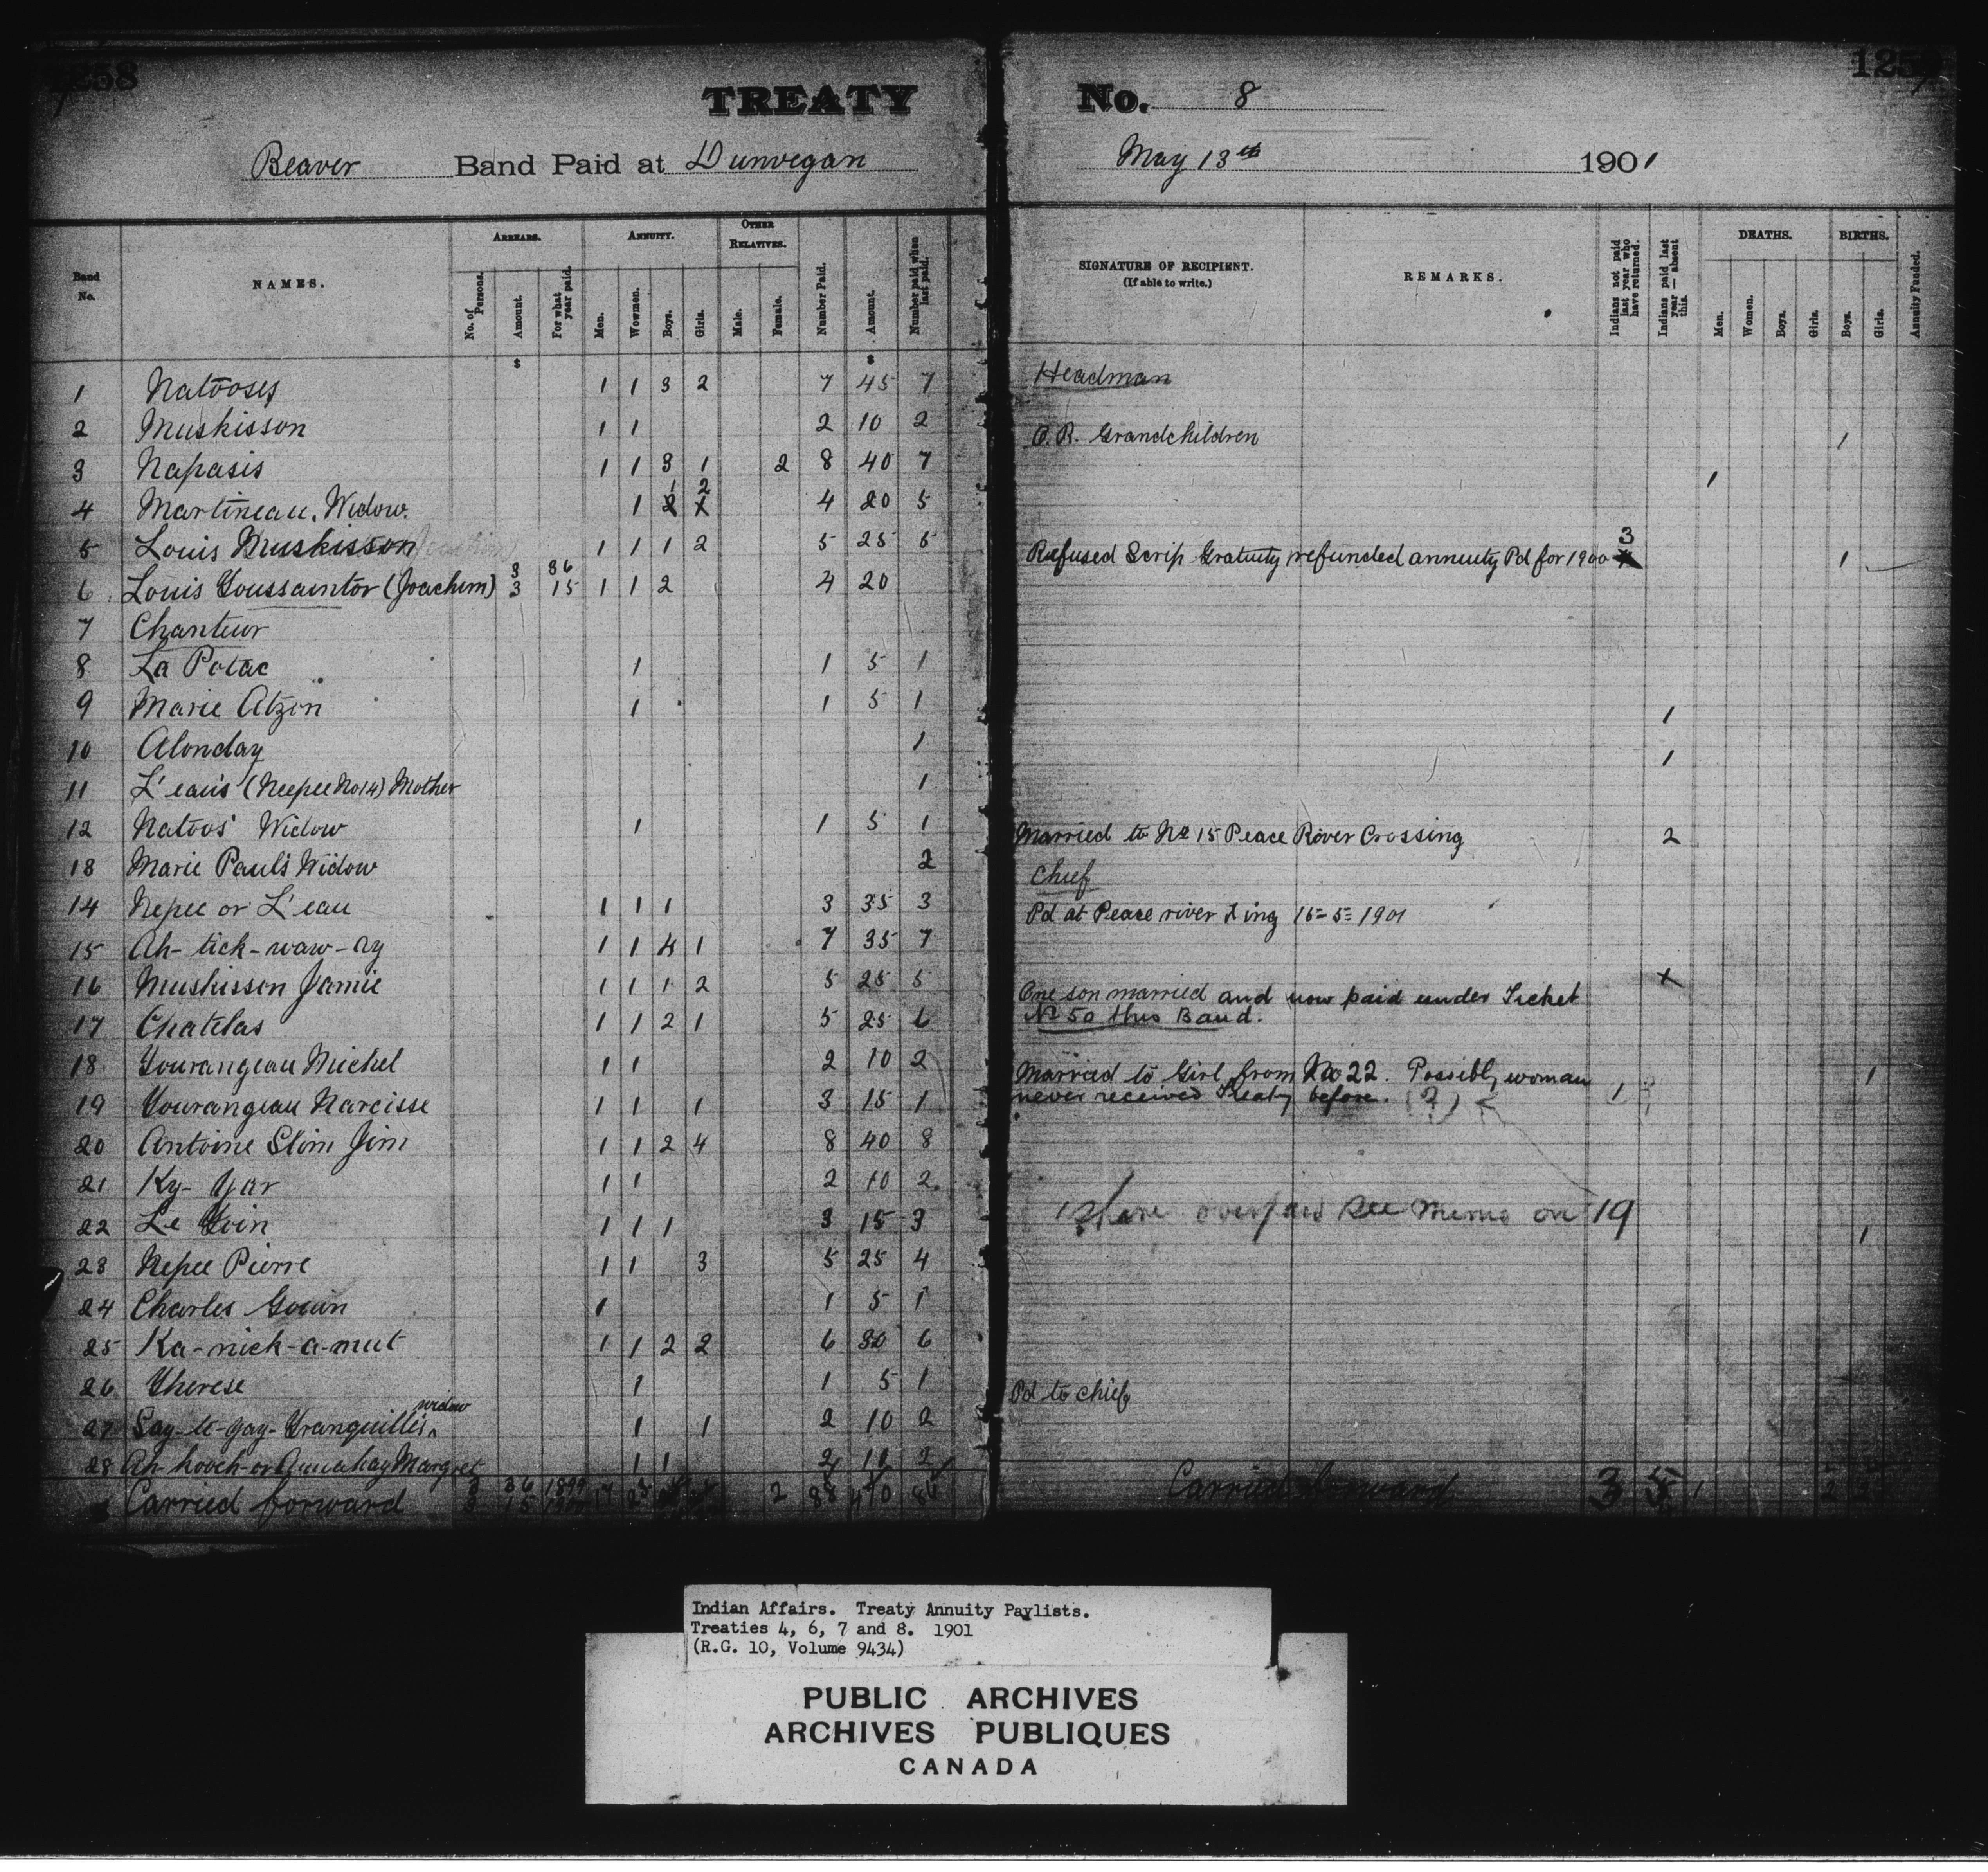 1258
TREATY No. 8 1259
Beaver Band Paid at Dunvegan May 13th 1901
Band No. NAMES. ARREARS. No. of Persons. Amount. For what year paid. ANNUITY. Men. Wowmen. Boys. Girls. OTHER RELATIVES. Male. Female. Number Paid. Amount. Number paid when last paid. SIGNATURE OF RECIPIENT. (If able to write.) REMARKS. Indians not paid last year who have returned. Indians paid last year — absent this. DEATHS. Men. Women. Boys. Girls. BIRTHS. Boys. Girls. Annuity Funded.
$ $
1 Natooses 1 1 3 2 7 45 7 Headman
2 Muskisson 1 1 2 10 2
3 Napasis 1 1 3 1 2 8 40 7 O.R. Grandchildren 1
4 Martineau, Widow. 1 2 1 1 2 4 20 5 1
5 Louis Muskisson 1 1 1 2 5 25 5
6 Louis Toussaintor (Joachim) 3 36 3 15 1 1 2 4 20 Refused Scrip Gratuity refunded annuity Pd for 1900 3 1
7 Chanteur
8 La Potac 1 1 5 1
9 Marie Atzen 1 1 5 1
10 Alonday 1 1
11 L'eau's (Neepee No 14) Mother 1 1
12 Natoos' Widow 1 1 5 1
13 Marie Paul's Widow 2 Married to No 15 Peace River Crossing 2
14 Nepee or L'eau 1 1 1 3 35 3 Chief
15 Ah-tick-waw-ay 1 1 4 1 7 35 7 Pd at Peace river Xing 15-5-1901
16 Muskisson Jamie 1 1 1 2 5 25 5
17 Chatelas 1 1 2 1 5 25 6 One son married and now paid under Ticket X
No 50 this Band.
18 Tourangeau Michel 1 1 2 10 2
19 Tourangeau Narcisse 1 1 1 3 15 1 Married to Girl from No 22. Possibly woman 1 1
never received Treaty before. (?)
20 Antoine Slim Jim 1 1 2 4 8 40 8
21 Ky-Yar 1 1 2 10 2
22 Le Goin 1 1 1 3 15 3 1 share overpaid see memo on 19
23 Nepee Pierre 1 1 3 5 25 4 1
24 Charles Gouin 1 1 5 1
25 Ka-nick-a-mut 1 1 2 2 6 30 6
26 Therese 1 1 5 1
27 Say-te-gay-Tranquillis widow 1 1 2 10 2 Pd to chief
28 Ah-hooch-or Margret 1 1 2 10 2
Carried forward 3 36 1899 3 15 1900 17 23 2 88 470 86 Carried forward 3 5 1 2 2
Indian Affairs. Treaty Annuity Paylists.
Treaties 4, 6, 7 and 8. 1901
(R.G. 10, Volume 9434)
PUBLIC ARCHIVES
ARCHIVES PUBLIQUES
CANADA